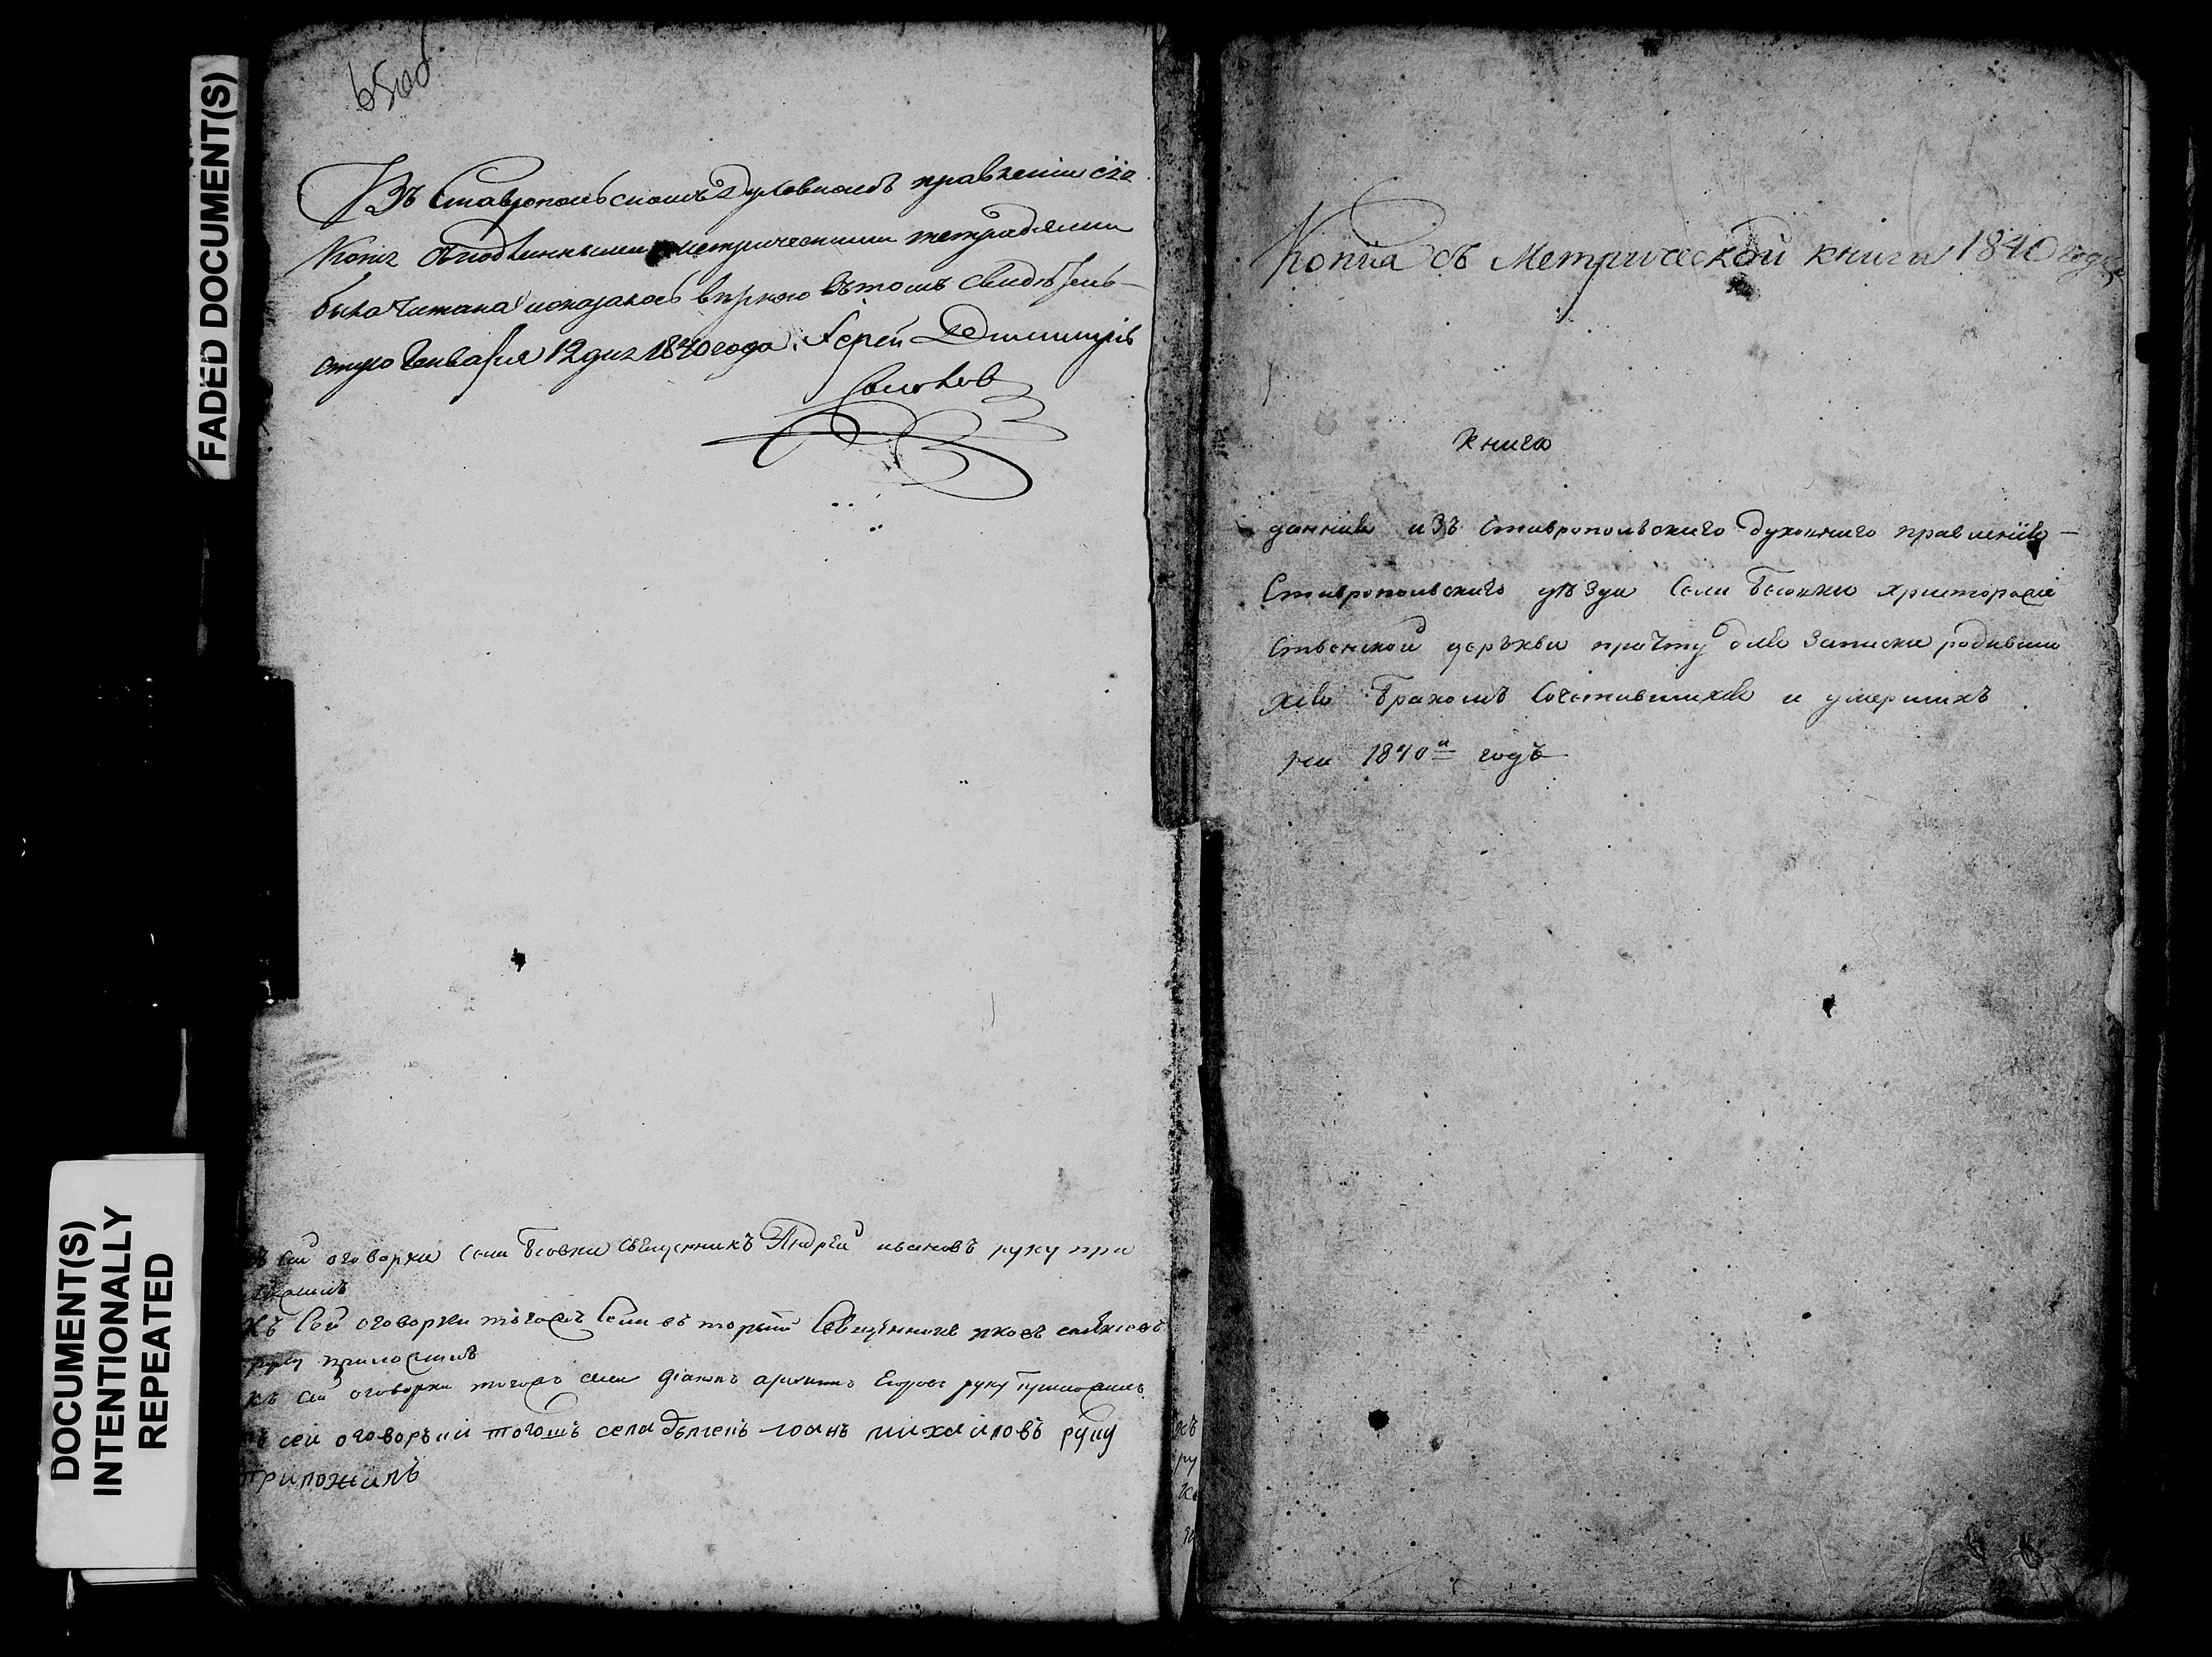 FADED DOCUMENT(S)
DOCUMENT(S)
INTENTIONALLY
REPEATED
65об
Въ Ставропольскомъ Духовномъ правленіи сія
Копія съ подлинными метрическими тетрадями
была читана и оказалось вѣрною въ томъ свидѣтель-
ствую Генваря 12 дня 1840 года. Іерей Димитрій
ъ сей оговорки села Бесовки священникъ Андрей ивановъ руку при
ложилъ
къ сей оговорки тогожъ села въторый священникъ
руку приложилъ
къ сей оговорки тогожъ села діаконъ Егоровъ руку приложилъ
ъ сей оговоръки тогожъ села дьячекъ іоанъ михаиловъ руку
приложилъ
Копїа съ Метрической книги 1840 года
Книга
данная изъ Ставропольскаго духовнаго правленїя
Ставропольскаго уѣзда Села Бесовки христорожде
ственской церъкви причту для записки родивши
хся Бракомъ Сочетавшихся и умершихъ
на 1840й годъ